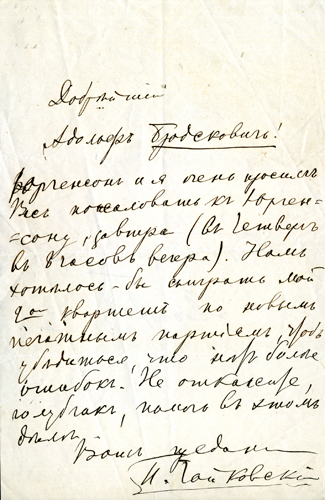 Добрѣйшій
Адольфъ Бродсковичъ!
Юргенсонъ и я очень просимъ
Васъ пожаловать къ Юрген-
=сону, завтра (въ Четвергъ
въ 8 часовъ вечера). Намъ
хотѣлось-бы сыграть мой
2ой квартетъ по новымъ
печатнымъ партіямъ, чтобъ
убѣдиться, что нѣтъ болѣе
ошибокъ. Не откажите,
голубчикъ, помочь въ этомъ
дѣлѣ.
Вашъ преданный
П. Чайковскій